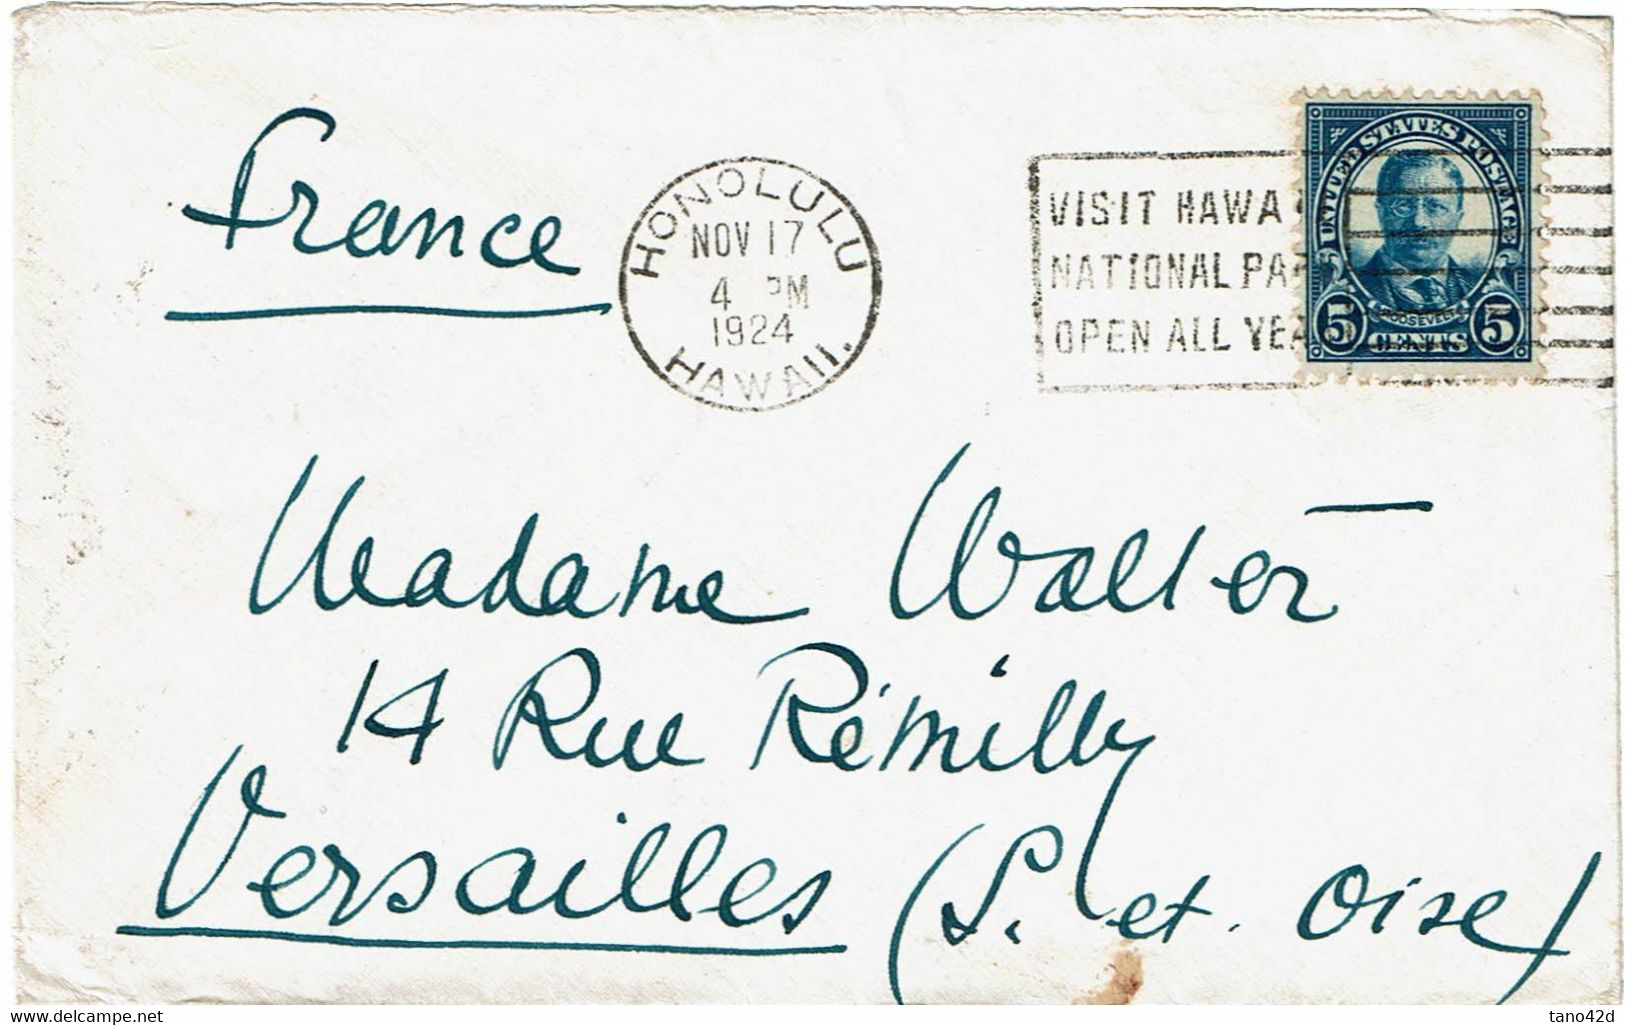 France
HONOLULU
NOV 17
4 PM
1924
HAWAII.
VISIT HAWA
NATIONAL PA
OPEN ALL YEA
UNITED STATES POSTAGE
ROOSEVELT
5 CENTS 5
Madame Walter
14 Rue Rémilly
Versailles (S. et. Oise)
www.delcampe.net
tano42d